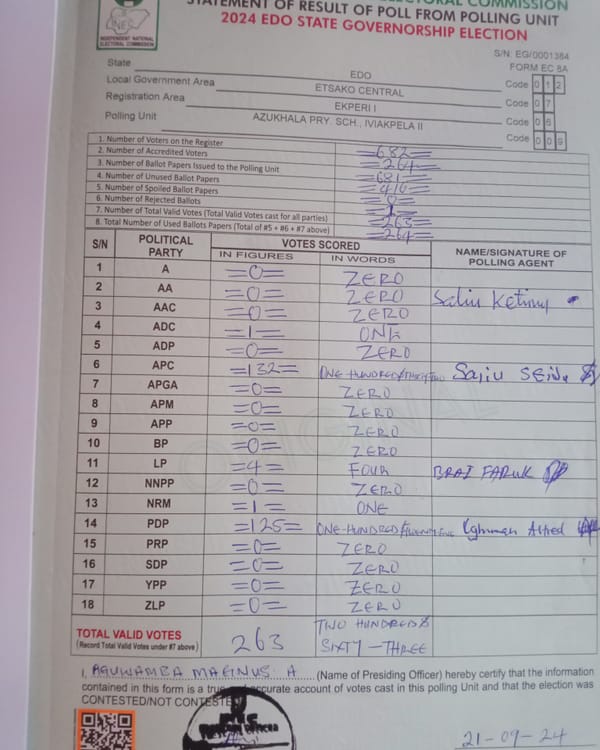 INDEPENDENT NATIONAL ELECTORAL COMMISSION
STATEMENT OF RESULT OF POLL FROM POLLING UNIT
2024 EDO STATE GOVERNORSHIP ELECTION
S/N: EG/0001384
FORM EC 8A
State EDO Code 0 1 2
Local Government Area ETSAKO CENTRAL Code 0 7
Registration Area EKPERI I Code 0 6
Polling Unit AZUKHALA PRY. SCH., IVIAKPELA II Code 0 0 9
1. Number of Voters on the Register =682=
2. Number of Accredited Voters =264=
3. Number of Ballot Papers Issued to the Polling Unit =681=
4. Number of Unused Ballot Papers =416=
5. Number of Spoiled Ballot Papers =0=
6. Number of Rejected Ballots =1=
7. Number of Total Valid Votes (Total Valid Votes cast for all parties) =263=
8. Total Number of Used Ballots Papers (Total of #5 + #6 + #7 above) =264=
S/N POLITICAL PARTY VOTES SCORED NAME/SIGNATURE OF POLLING AGENT
IN FIGURES IN WORDS
1 A =0= ZERO
2 AA =0= ZERO
3 AAC =0= ZERO
4 ADC =1= ONE
5 ADP =0= ZERO
6 APC =132= ONE-HUNDRED/THIRTY TWO
7 APGA =0= ZERO
8 APM =0= ZERO
9 APP =0= ZERO
10 BP =0= ZERO
11 LP =4= FOUR BRAI FARUK
12 NNPP =0= ZERO
13 NRM =1= ONE
14 PDP =125= ONE-HUNDRED/TWENTY FIVE
15 PRP =0= ZERO
16 SDP =0= ZERO
17 YPP =0= ZERO
18 ZLP =0= ZERO
TOTAL VALID VOTES 263 TWO HUNDRED &
(Record Total Valid Votes under #7 above) SIXTY-THREE
I, AGUWAMBA MAGNUS A (Name of Presiding Officer) hereby certify that the information
contained in this form is a true accurate account of votes cast in this polling Unit and that the election was
CONTESTED/NOT CONTESTED
21-09-24